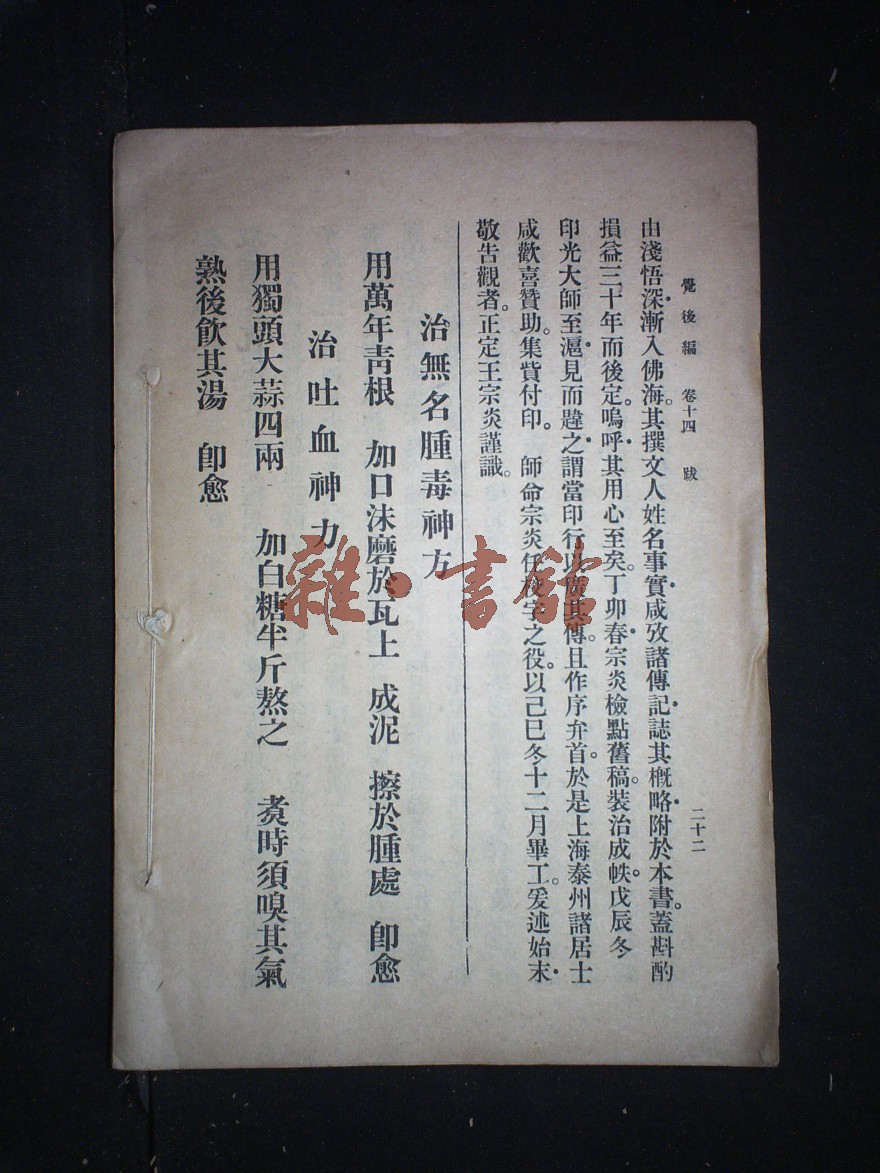 覺後編 卷十四 跋 二十二
由淺悟深漸入佛海。其撰文人姓名事實咸攷諸傳記誌其槪略附於本書。蓋斟酌
損益三十年而後定。嗚呼其用心至矣。丁卯春宗炎檢點舊稿。裝治成帙。戊辰冬
印光大師至滬見而韙之謂當印行以廣其傳。且作序弁首。於是上海泰州諸居士
咸歡喜贊助。集貲付印。 師命宗炎任校字之役。以己巳冬十二月畢工。爰述始末
敬告觀者。正定王宗炎謹識。
治無名腫毒神方
用萬年靑根 加口沫磨於瓦上 成泥 擦於腫處 卽愈
治吐血神力
用獨頭大蒜四兩 加白糖半斤熬之 煑時須嗅其氣
熟後飮其湯 卽愈
雜·書館